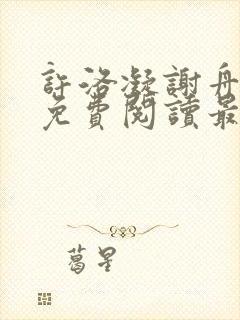 許洛凝謝舟
免費閱讀最
葛星